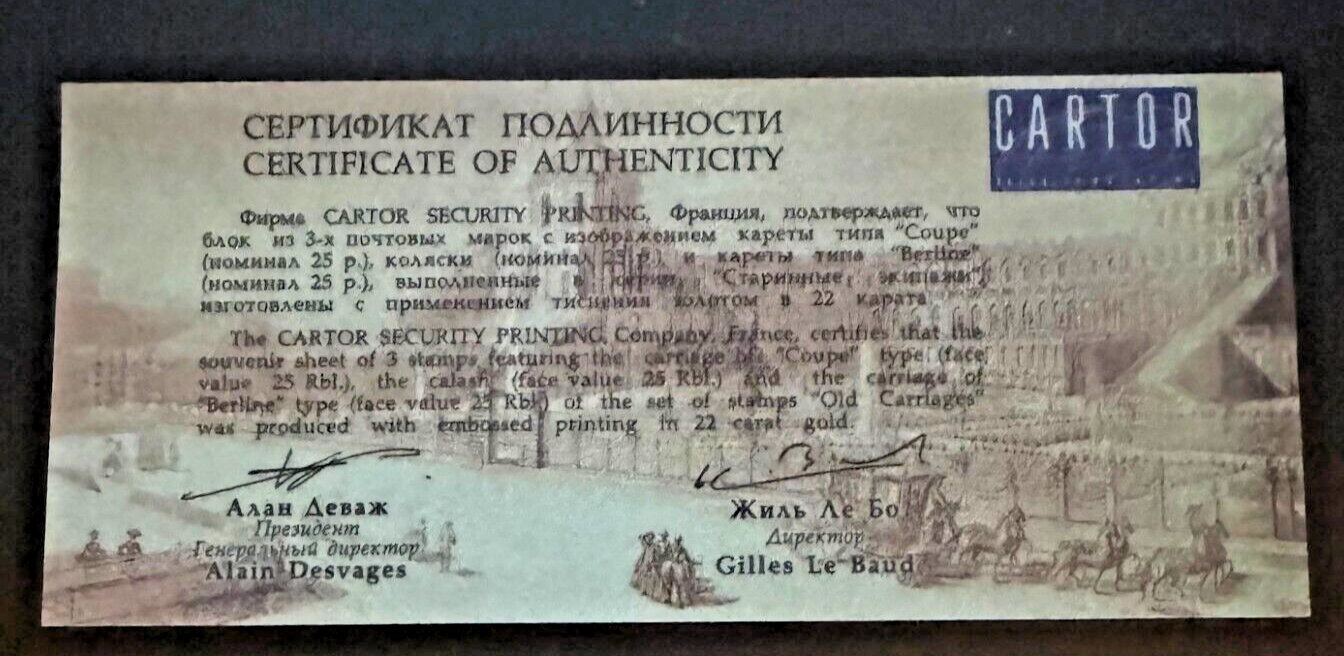 СЕРТИФИКАТ ПОДЛИННОСТИ
CERTIFICATE OF AUTHENTICITY
CARTOR
Фирма CARTOR SECURITY PRINTING, Франция, подтверждает, что
блок из 3-х почтовых марок с изображением кареты типа "Coupe"
(номинал 25 р.), коляски (номинал 25 р.) и кареты типа "Berline"
(номинал 25 р.), выполненные в серии "Старинные экипажи",
изготовлены с применением тиснения золотом в 22 карата.
The CARTOR SECURITY PRINTING Company, France, certifies that the
souvenir sheet of 3 stamps featuring the carriage of "Coupe" type (face
value 25 Rbl.), the calash (face value 25 Rbl.) and the carriage of
"Berline" type (face value 25 Rbl.) of the set of stamps "Old Carriages"
was produced with embossed printing in 22 carat gold.
Алан Деваж
Президент
Генеральный директор
Alain Desvages
Жиль Ле Бо
Директор
Gilles Le Baud